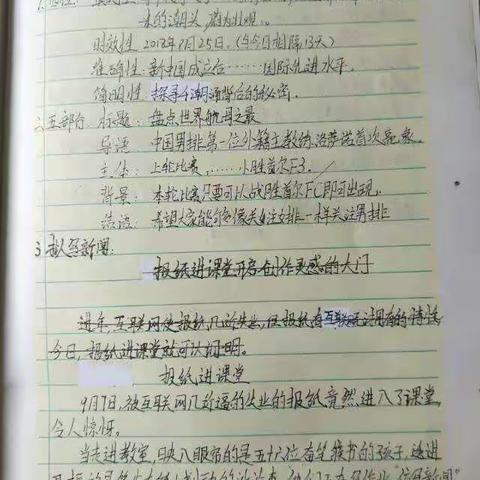 来的潮头,蔚为壮观。
时效性 2018年9月25日.(与今日相隔13天)
准确性:新中国成立后……国际先进水平.
简明性 探寻个潮涌背后的秘密.
二、五部份.标题:盘点世界航母之最
导语 中国男排第一位外籍主教练洛萨诺首次亮象.
主体:上轮比赛,……小胜首尔F3.
背景:本轮比赛只要可以战胜首尔FC即可出现.
结语:希望大家能够像关注女排一样关注男排
3.拟写新闻:
报纸进课堂开启创作灵感的大门
进年,互联网使报纸几近失业,但报纸有互联
今日,报纸进课堂就可以们明。
报纸进课堂
9月7日,被互联网几近逼的失业的报纸竟然进入了课堂,
令人惊讶。
当走进教室,映入眼帘的是五十六位奋笔疾书的孩子,